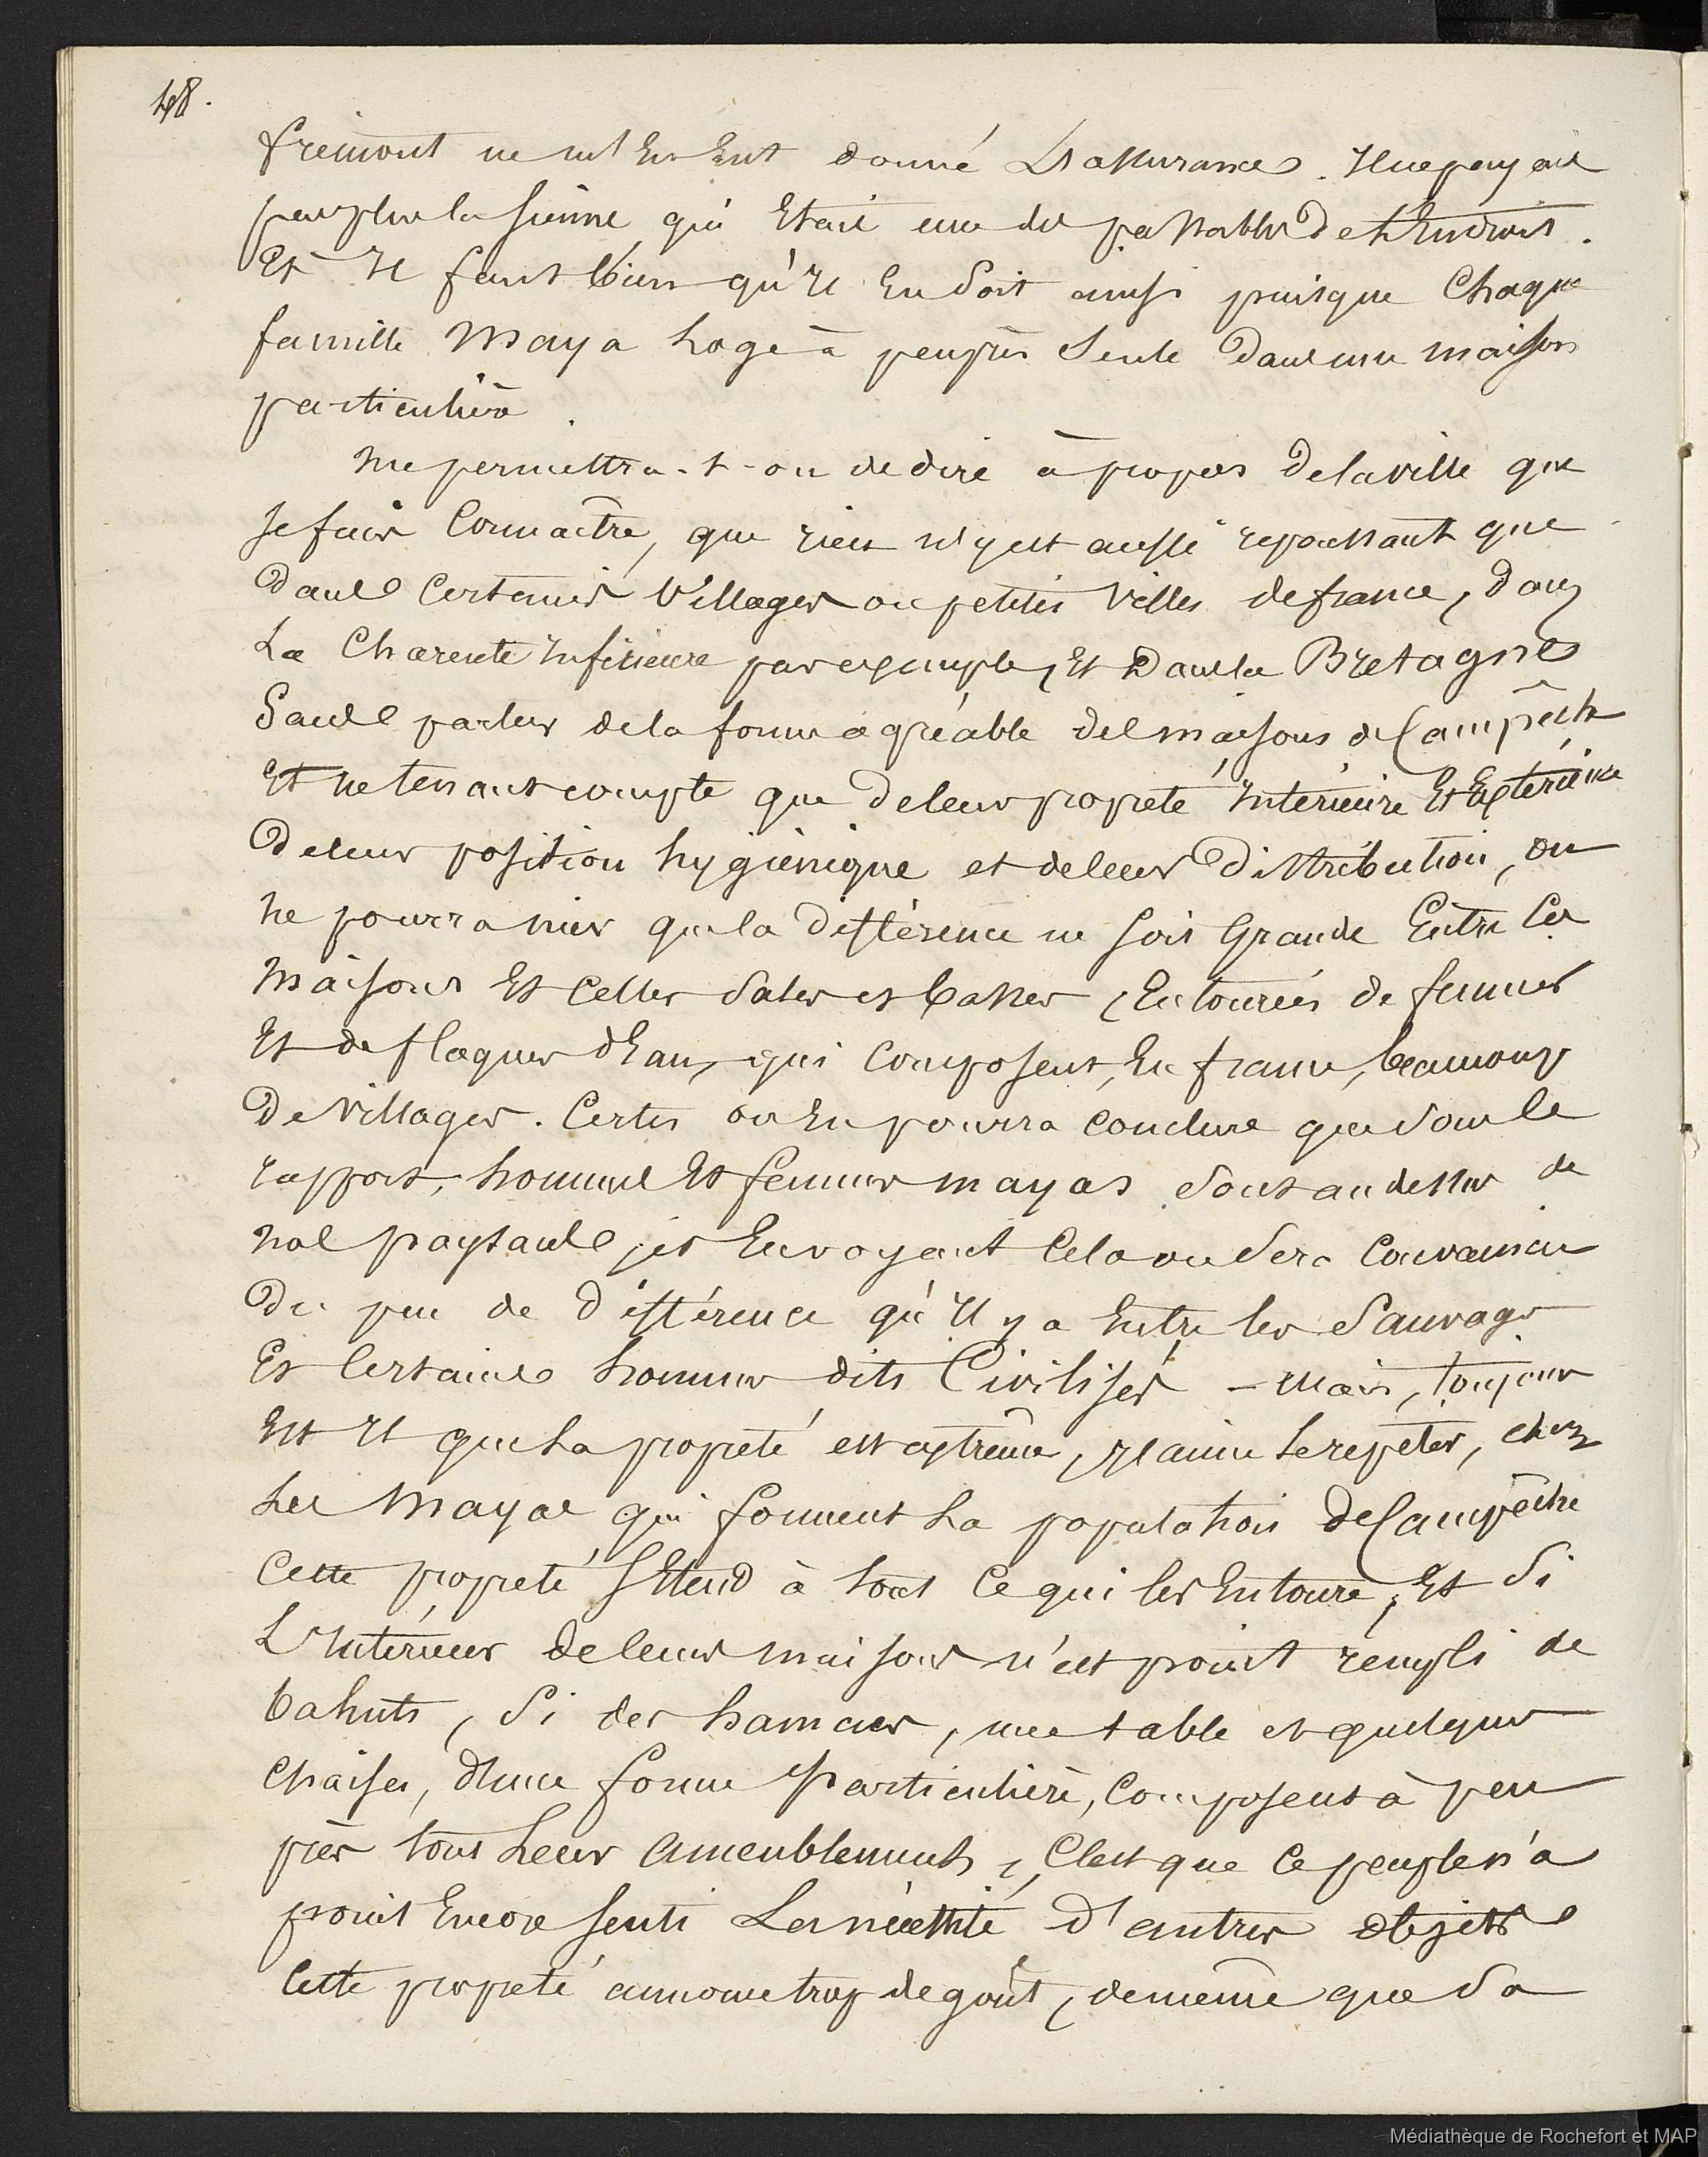 48.
fremont ne m'En Eut donné L'assurance. Il ne payait
pas plus la sienne, qui Etait une des passables de L'Endroit.
Et Il faut bien qu'Il En soit ainsi puisque Chaque
famille Maya Loge à peuprès Seule Dans une maison
particulière.
Me permettra-t-on de dire à propos de la ville que
je fais Connaître, que rien n'y est aussi repoussant que
Dans Certains Villages ou petites Villes de france, dans
La Charente Inférieure par exemple, Et Dans la Bretagne
Sans parler de la forme agréable des maisons de Campêche
Et ne tenant compte que de leur propreté Intérieure Et Extérieure
De leur position hygiènique et de leur Distribution, on
ne pourra nier que la Différence ne soit Grande Entre Ces
Maisons Et Celles Sales et basses, Entourées de fumier
Et de flaques d'Eau, qui Composent, En france, beaucoup
De Villages. Certes on En pourra Conclure que sous ce
rapport, hommes Et femmes mayas sont au dessus de
nos paysans, et En voyant Cela on sera Convaincu
Du peu de Différence qu'Il y a Entre les Sauvages
Et Certains hommes dits Civilisés – Mais, toujours
Est Il que La propreté est extrême, j'aime Le repéter, chez
Les Mayas qui forment La population de Campêche
Cette propreté S'Etend à tout Ce qui les Entoure, Et Si
L'Intérieur de leurs maisons n'est point rempli de
bahuts, Si des hamacs, une table et quelques
Chaises, d'une forme Particulière, Composent à peu
près tout Leur Ameublement, C'est que Ce peuple n'a
point Encore senti La nécessité d'autres objets
Cette propreté annonce trop de goût, de même que Sa
Médiathèque de Rochefort et MAP